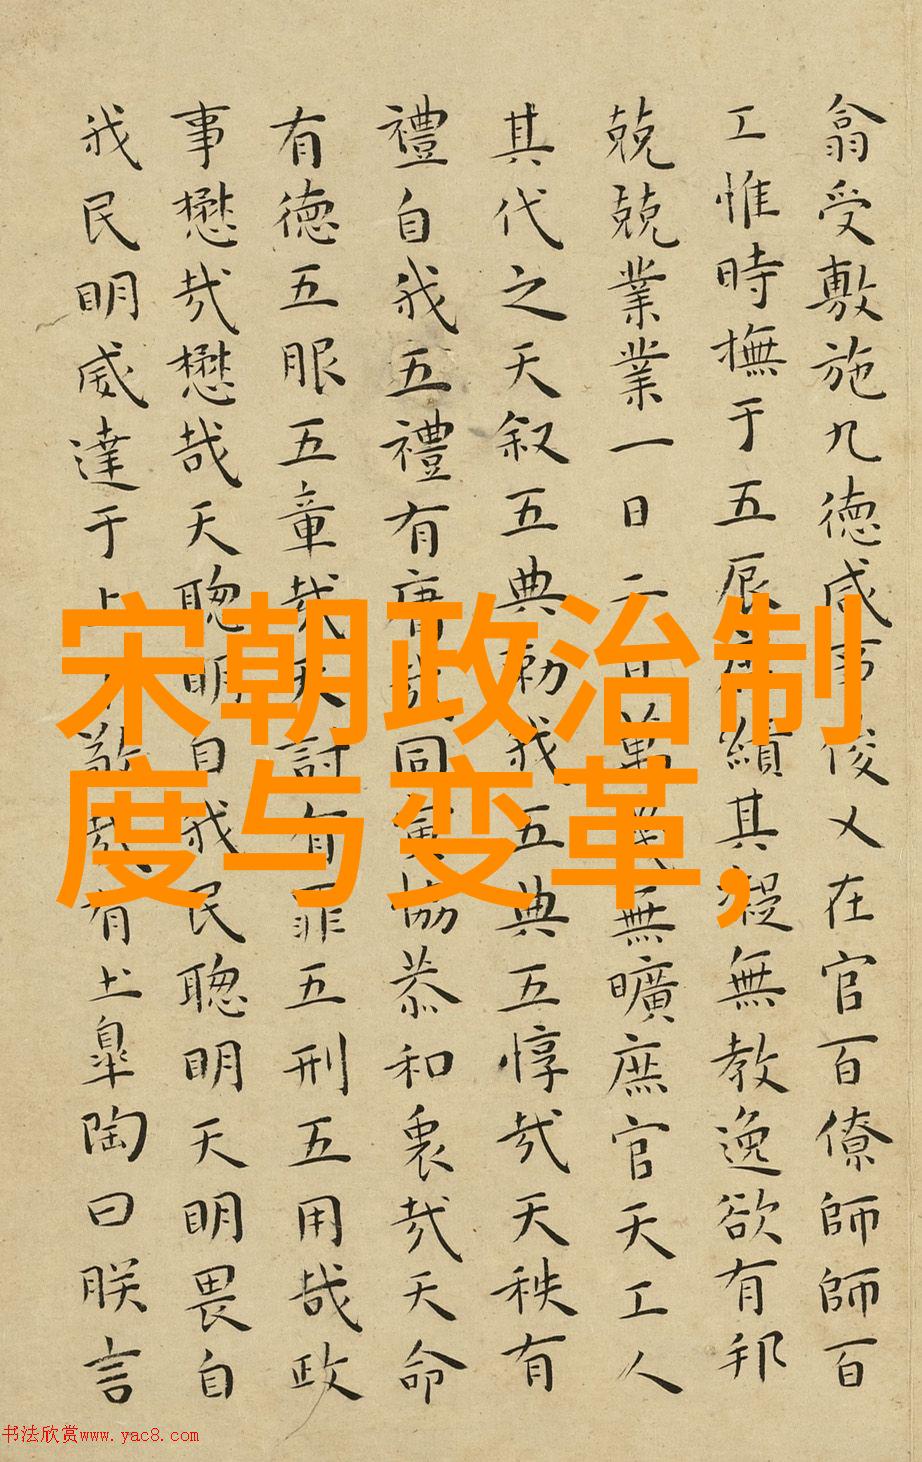 翕受敷施九徳咸事俊乂在官百僚師師百
工惟時撫于五辰庶績其凝無教逸欲有邦
兢兢業業一日二日萬幾無曠庶官天工人
其代之天叙五典勑我五典五惇哉天秩有
禮自我五禮有庸哉同寅協恭和衷哉天命
有徳五服五章哉天討有罪五刑五用哉政
事懋哉懋哉天聡明自我民聡明天明畏自
我民明威達于上下敬哉有土皐陶曰朕言
宋朝政治制
度与变革,
书法欣赏www.yac8.com